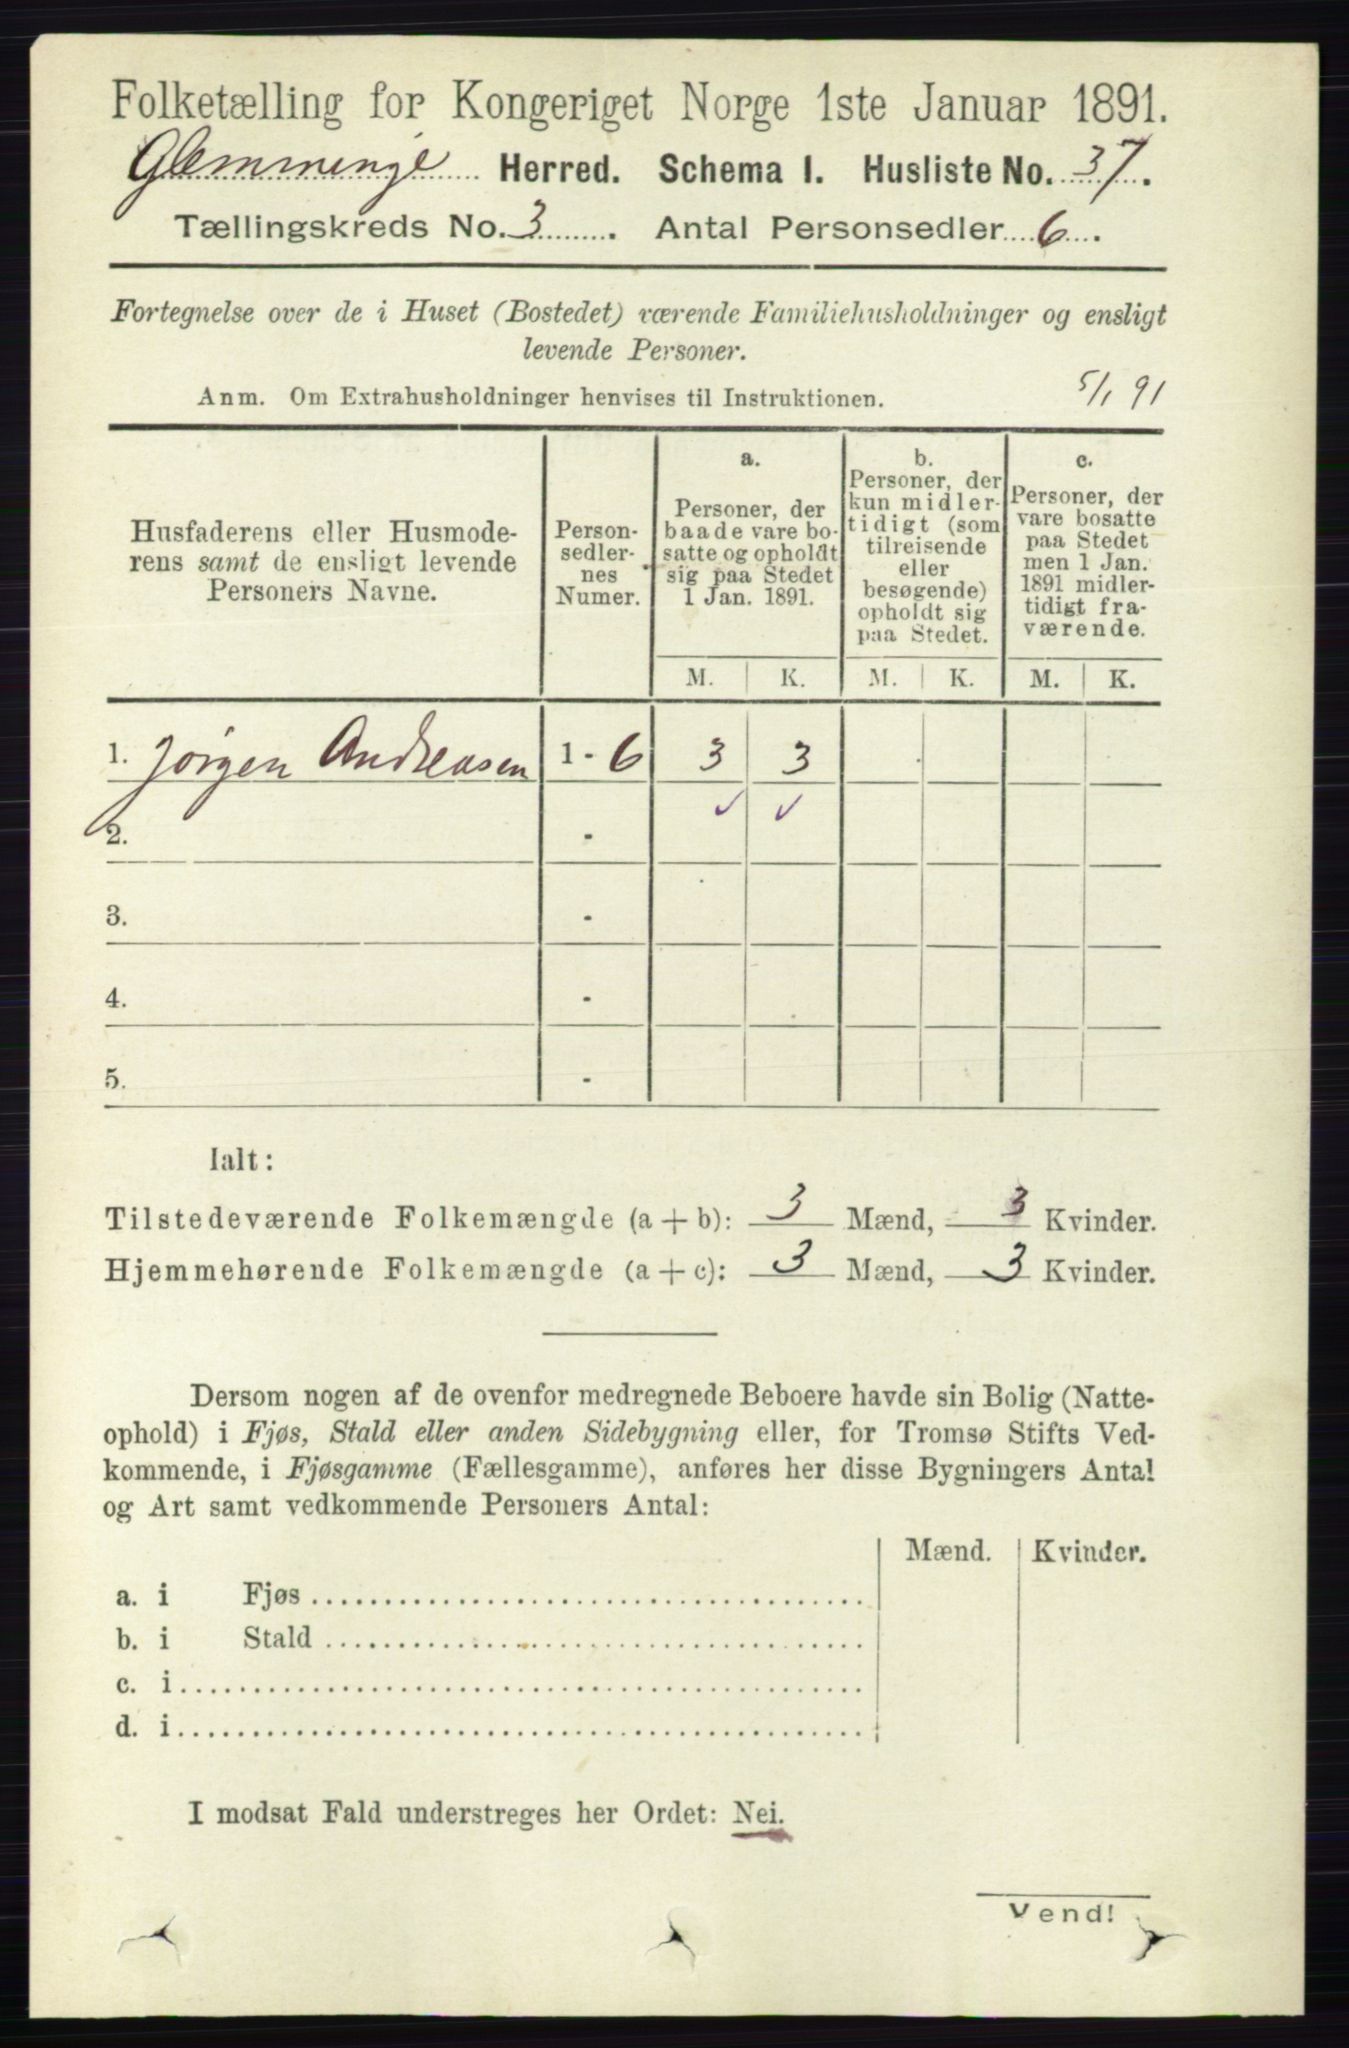 Folketælling for Kongeriget Norge 1ste Januar 1891.
Glemminge Herred. Schema I. Husliste No. 37.
Tællingskreds No. 3. Antal Personsedler 6.
Fortegnelse over de i Huset (Bostedet) værende Familiehusholdninger og ensligt
levende Personer.
Anm. Om Extrahusholdninger henvises til Instruktionen.
5/1 91
Husfaderens eller Husmode-
rens samt de ensligt levende
Personers Navne.
Person-
sedler-
nes
Numer.
a.
Personer, der
baade vare bo-
satte og opholdt
sig paa Stedet
1 Jan. 1891.
b.
Personer, der
kun midler-
tidigt (som
tilreisende
eller
besøgende)
opholdt sig
paa Stedet.
c.
Personer, der
vare bosatte
paa Stedet
men 1 Jan.
1891 midler-
tidigt fra-
værende.
M. K. M. K. M. K.
1. Jørgen Andreasen 1 - 6 3 3
✓ ✓
2. -
3. -
4. -
5. -
Ialt:
Tilstedeværende Folkemængde (a + b): 3 Mænd, 3 Kvinder.
Hjemmehørende Folkemængde (a + c): 3 Mænd, 3 Kvinder.
Dersom nogen af de ovenfor medregnede Beboere havde sin Bolig (Natte-
ophold) i Fjøs, Stald eller anden Sidebygning eller, for Tromsø Stifts Ved-
kommende, i Fjøsgamme (Fællesgamme), anføres her disse Bygningers Antal
og Art samt vedkommende Personers Antal:
Mænd. Kvinder.
a. i Fjøs
b. i Stald
c. i
d. i
I modsat Fald understreges her Ordet: Nei.
Vend!